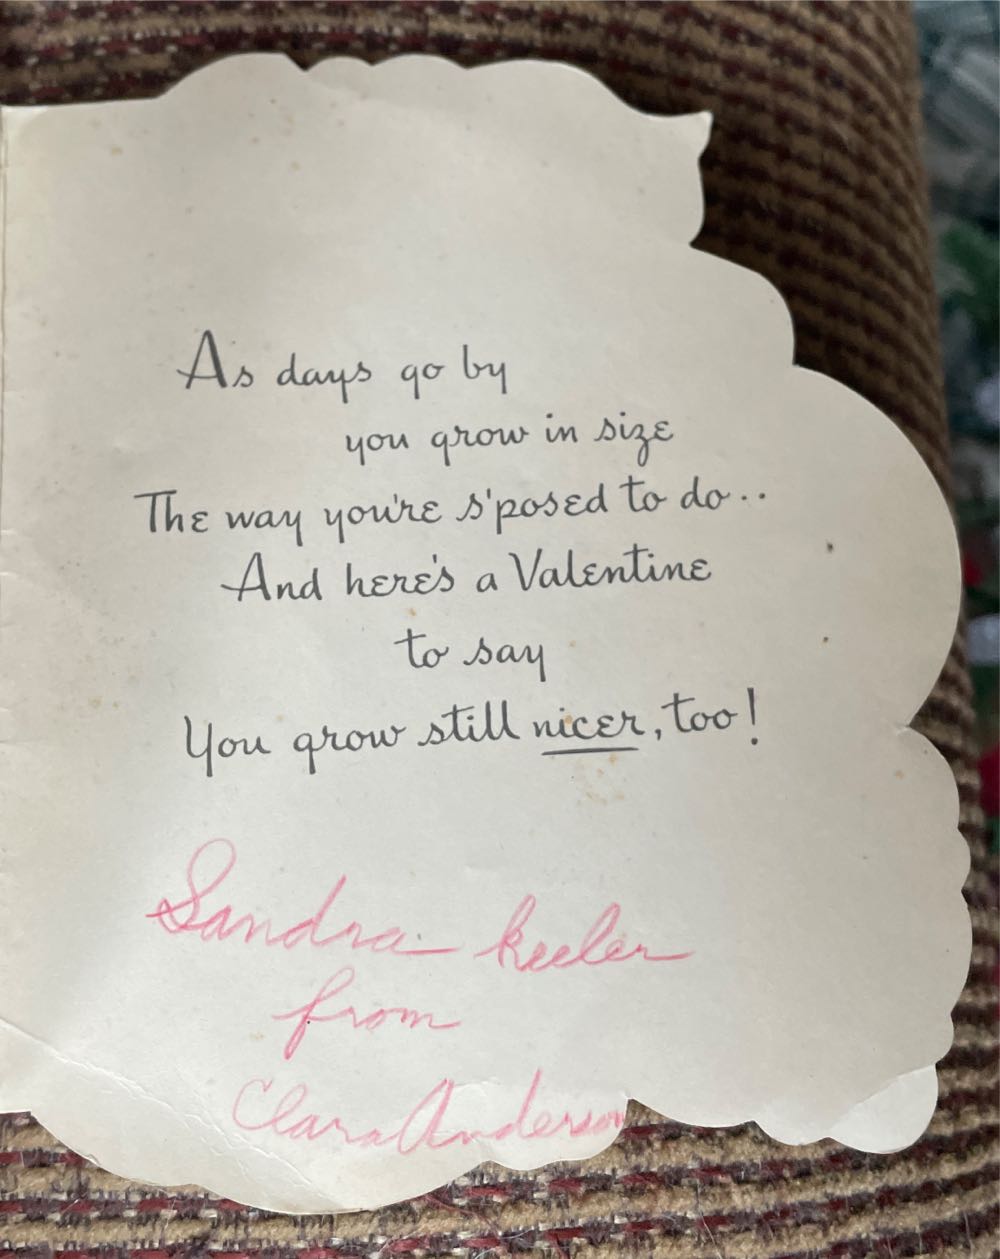 As days go by
you grow in size
The way you're s'posed to do..
And here's a Valentine
to say
You grow still nicer, too!
Sandra Keeler
from
Clara Anderson